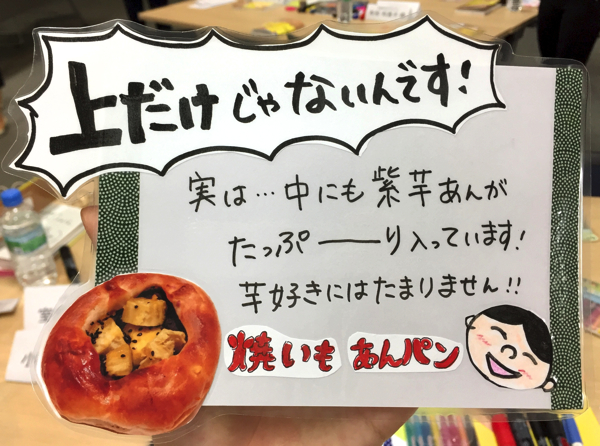 上だけじゃないんです!
実は…中にも紫芋あんが
たっぷーーり入っています!
芋好きにはたまりません!!
焼いもあんパン